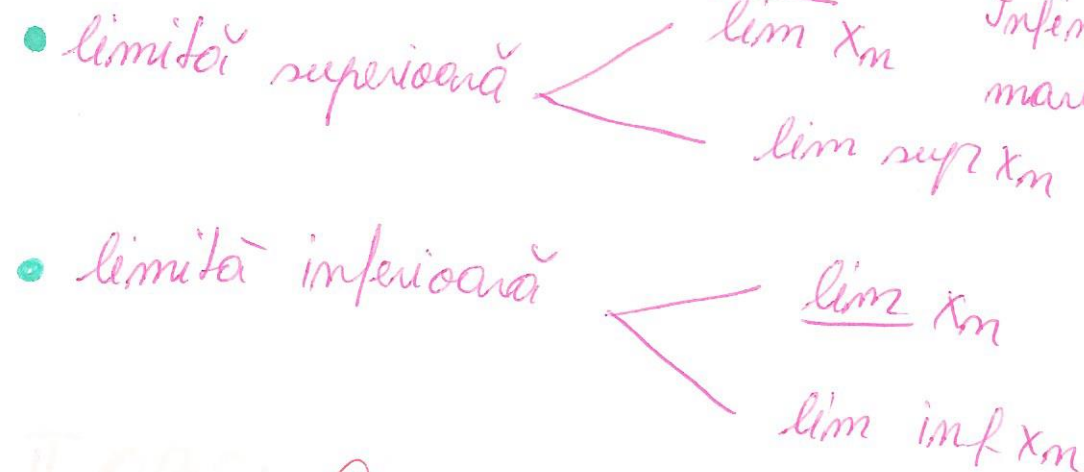 • limită superioară
lim xₙ
lim sup xₙ
• limită inferioară
lim xₙ
lim inf xₙ